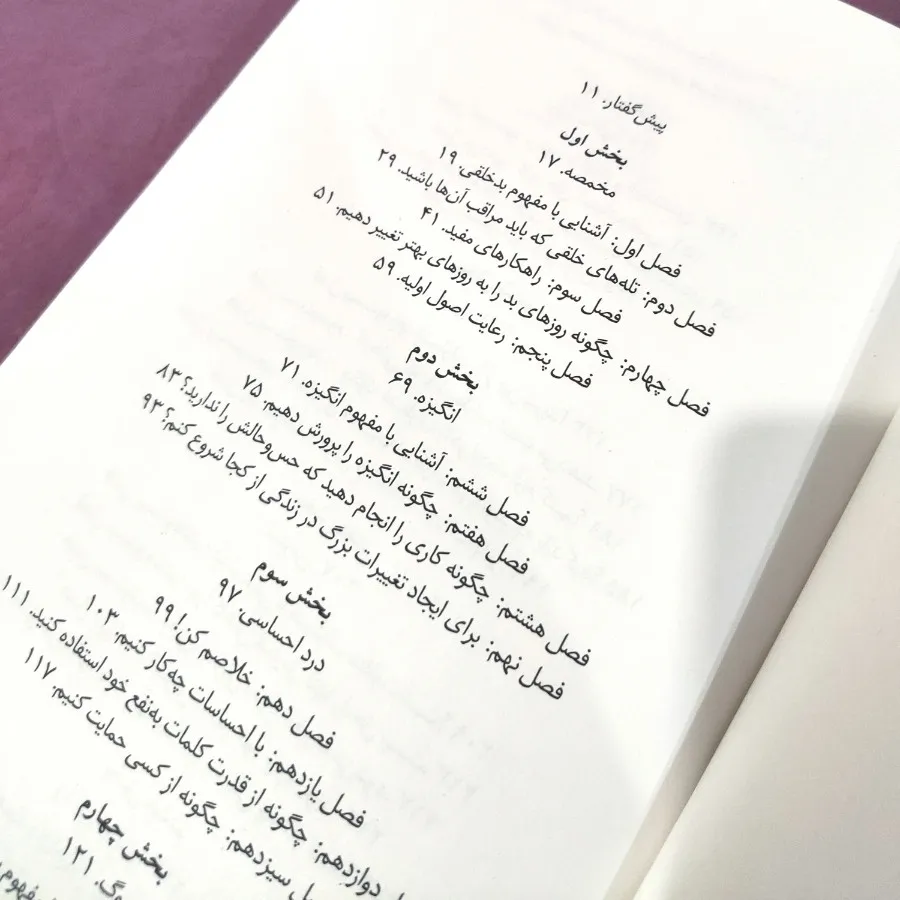 پیش‌گفتار. ۱۱
بخش اول
مخمصه. ۱۷
فصل اول: آشنایی با مفهوم بدخلقی. ۱۹
فصل دوم: تله‌های خلقی که باید مراقب آن‌ها باشید. ۲۹
فصل سوم: راهکارهای مفید. ۴۱
فصل چهارم: چگونه روزهای بد را به روزهای بهتر تغییر دهیم. ۵۱
فصل پنجم: رعایت اصول اولیه. ۵۹
بخش دوم
انگیزه. ۶۹
فصل ششم: آشنایی با مفهوم انگیزه. ۷۱
فصل هفتم: چگونه انگیزه را پرورش دهیم. ۷۵
فصل هشتم: چگونه کاری را انجام دهید که حس‌وحالش را ندارید؟ ۸۳
فصل نهم: برای ایجاد تغییرات بزرگ در زندگی از کجا شروع کنم؟ ۹۳
بخش سوم
درد احساسی. ۹۷
فصل دهم: خلاصم کن! ۹۹
فصل یازدهم: با احساسات چه‌کار کنیم. ۱۰۳
دوازدهم: چگونه از قدرت کلمات به‌نفع خود استفاده کنید. ۱۱۱
سیزدهم: چگونه از کسی حمایت کنیم. ۱۱۷
بخش چهارم
۱۲۱